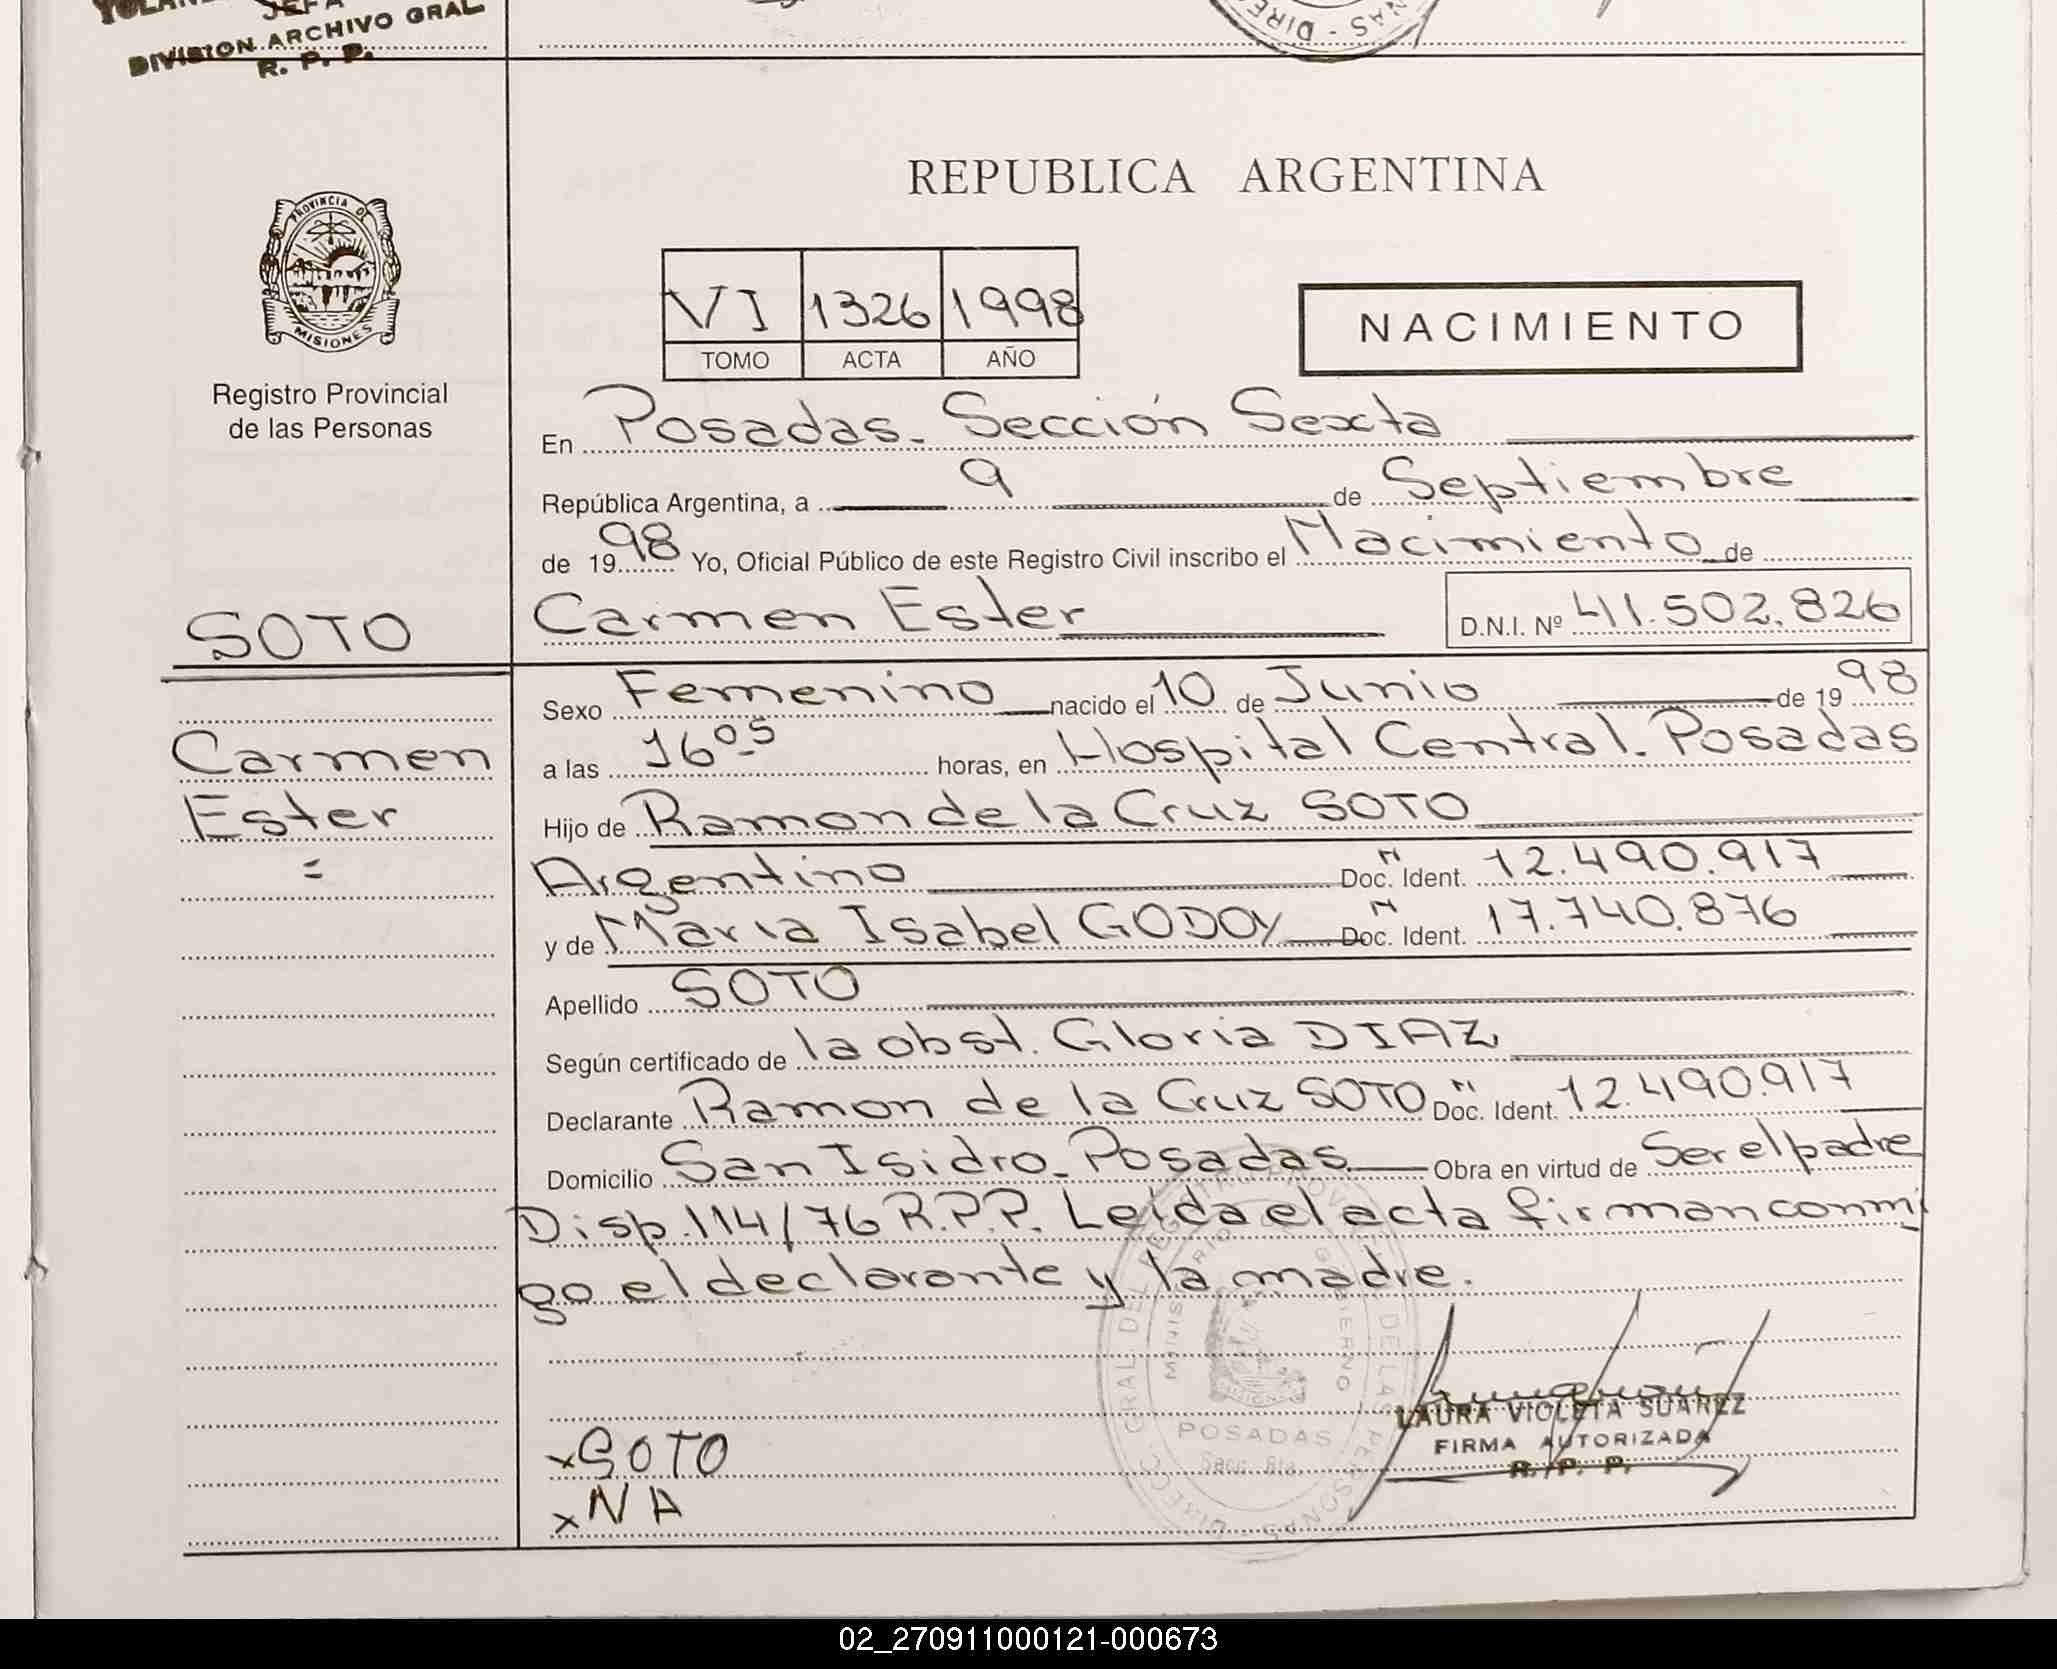 JEFA
DIVISION ARCHIVO GRAL
R. P. P.
NAS - DIREC
REPUBLICA ARGENTINA
PROVINCIA DE
MISIONES
Registro Provincial
de las Personas
VI 1326 1998
TOMO ACTA AÑO
NACIMIENTO
En Posadas. Sección Sexta
República Argentina, a 9 de Septiembre
de 1998 Yo, Oficial Público de este Registro Civil inscribo el Nacimiento de
SOTO
Carmen Ester D.N.I. Nº 41.502.826
Carmen
Ester
Sexo Femenino nacido el 10 de Junio de 1998
a las 16 05 horas, en Hospital Central. Posadas
Hijo de Ramon de la Cruz SOTO
Argentino Doc. Ident. 12.490.917
y de Maria Isabel GODOY Doc. Ident. 17.740.876
Apellido SOTO
Según certificado de la obst. Gloria DIAZ
Declarante Ramon de la Cruz SOTO Doc. Ident. 12.490.917
Domicilio San Isidro. Posadas Obra en virtud de Ser el padre
Disp. 114/76 R.P.P. Leída el acta firman conmi
go el declarante y la madre.
POSADAS
Secc. 6ta.
LAURA VIOLETA SUAREZ
FIRMA AUTORIZADA
R. P. P.
x SOTO
x N A
02_270911000121-000673